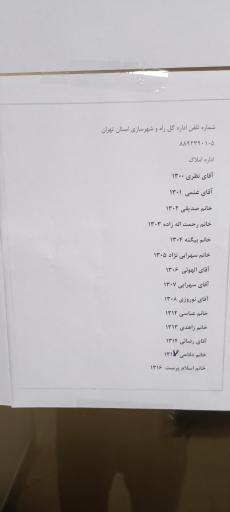 شماره تلفن اداره کل راه و شهرسازی استان تهران
۸۸۹۲۳۹۰۱-۵
اداره املاک
آقای نظری ۱۳۰۰
آقای غنمی ۱۳۰۱
خانم صدیقی ۱۳۰۲
خانم رحمت اله زاده ۱۳۰۳
خانم بیگنه ۱۳۰۴
خانم سهرابی نژاد ۱۳۰۵
آقای الهوئی ۱۳۰۶
آقای سهرابی ۱۳۰۷
آقای نوروزی ۱۳۰۸
خانم عباسی ۱۳۱۲
خانم زاهدی ۱۳۱۳
آقای رضائی ۱۳۱۴
خانم ۱۳۱۷
خانم اسلام پرست ۱۳۱۶